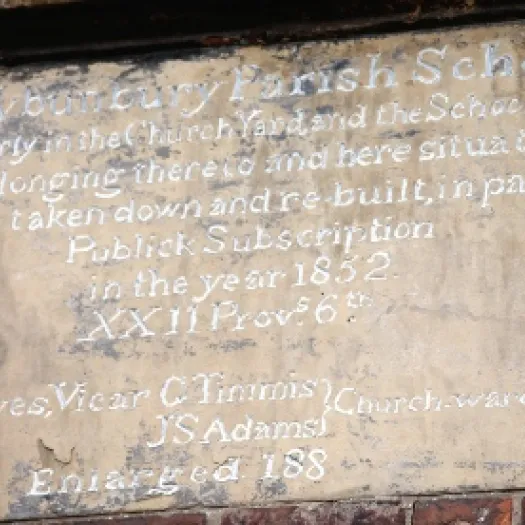 ybunbury Parish Scho
rly in the Church Yard, and the Schoo
longing thereto and here situat
taken down and re-built, in pa
Publick Subscription
in the year 1852.
XXII Provs. 6th.
es, Vicar C. Timmis } Church-ward
J S Adams }
Enlarged 188